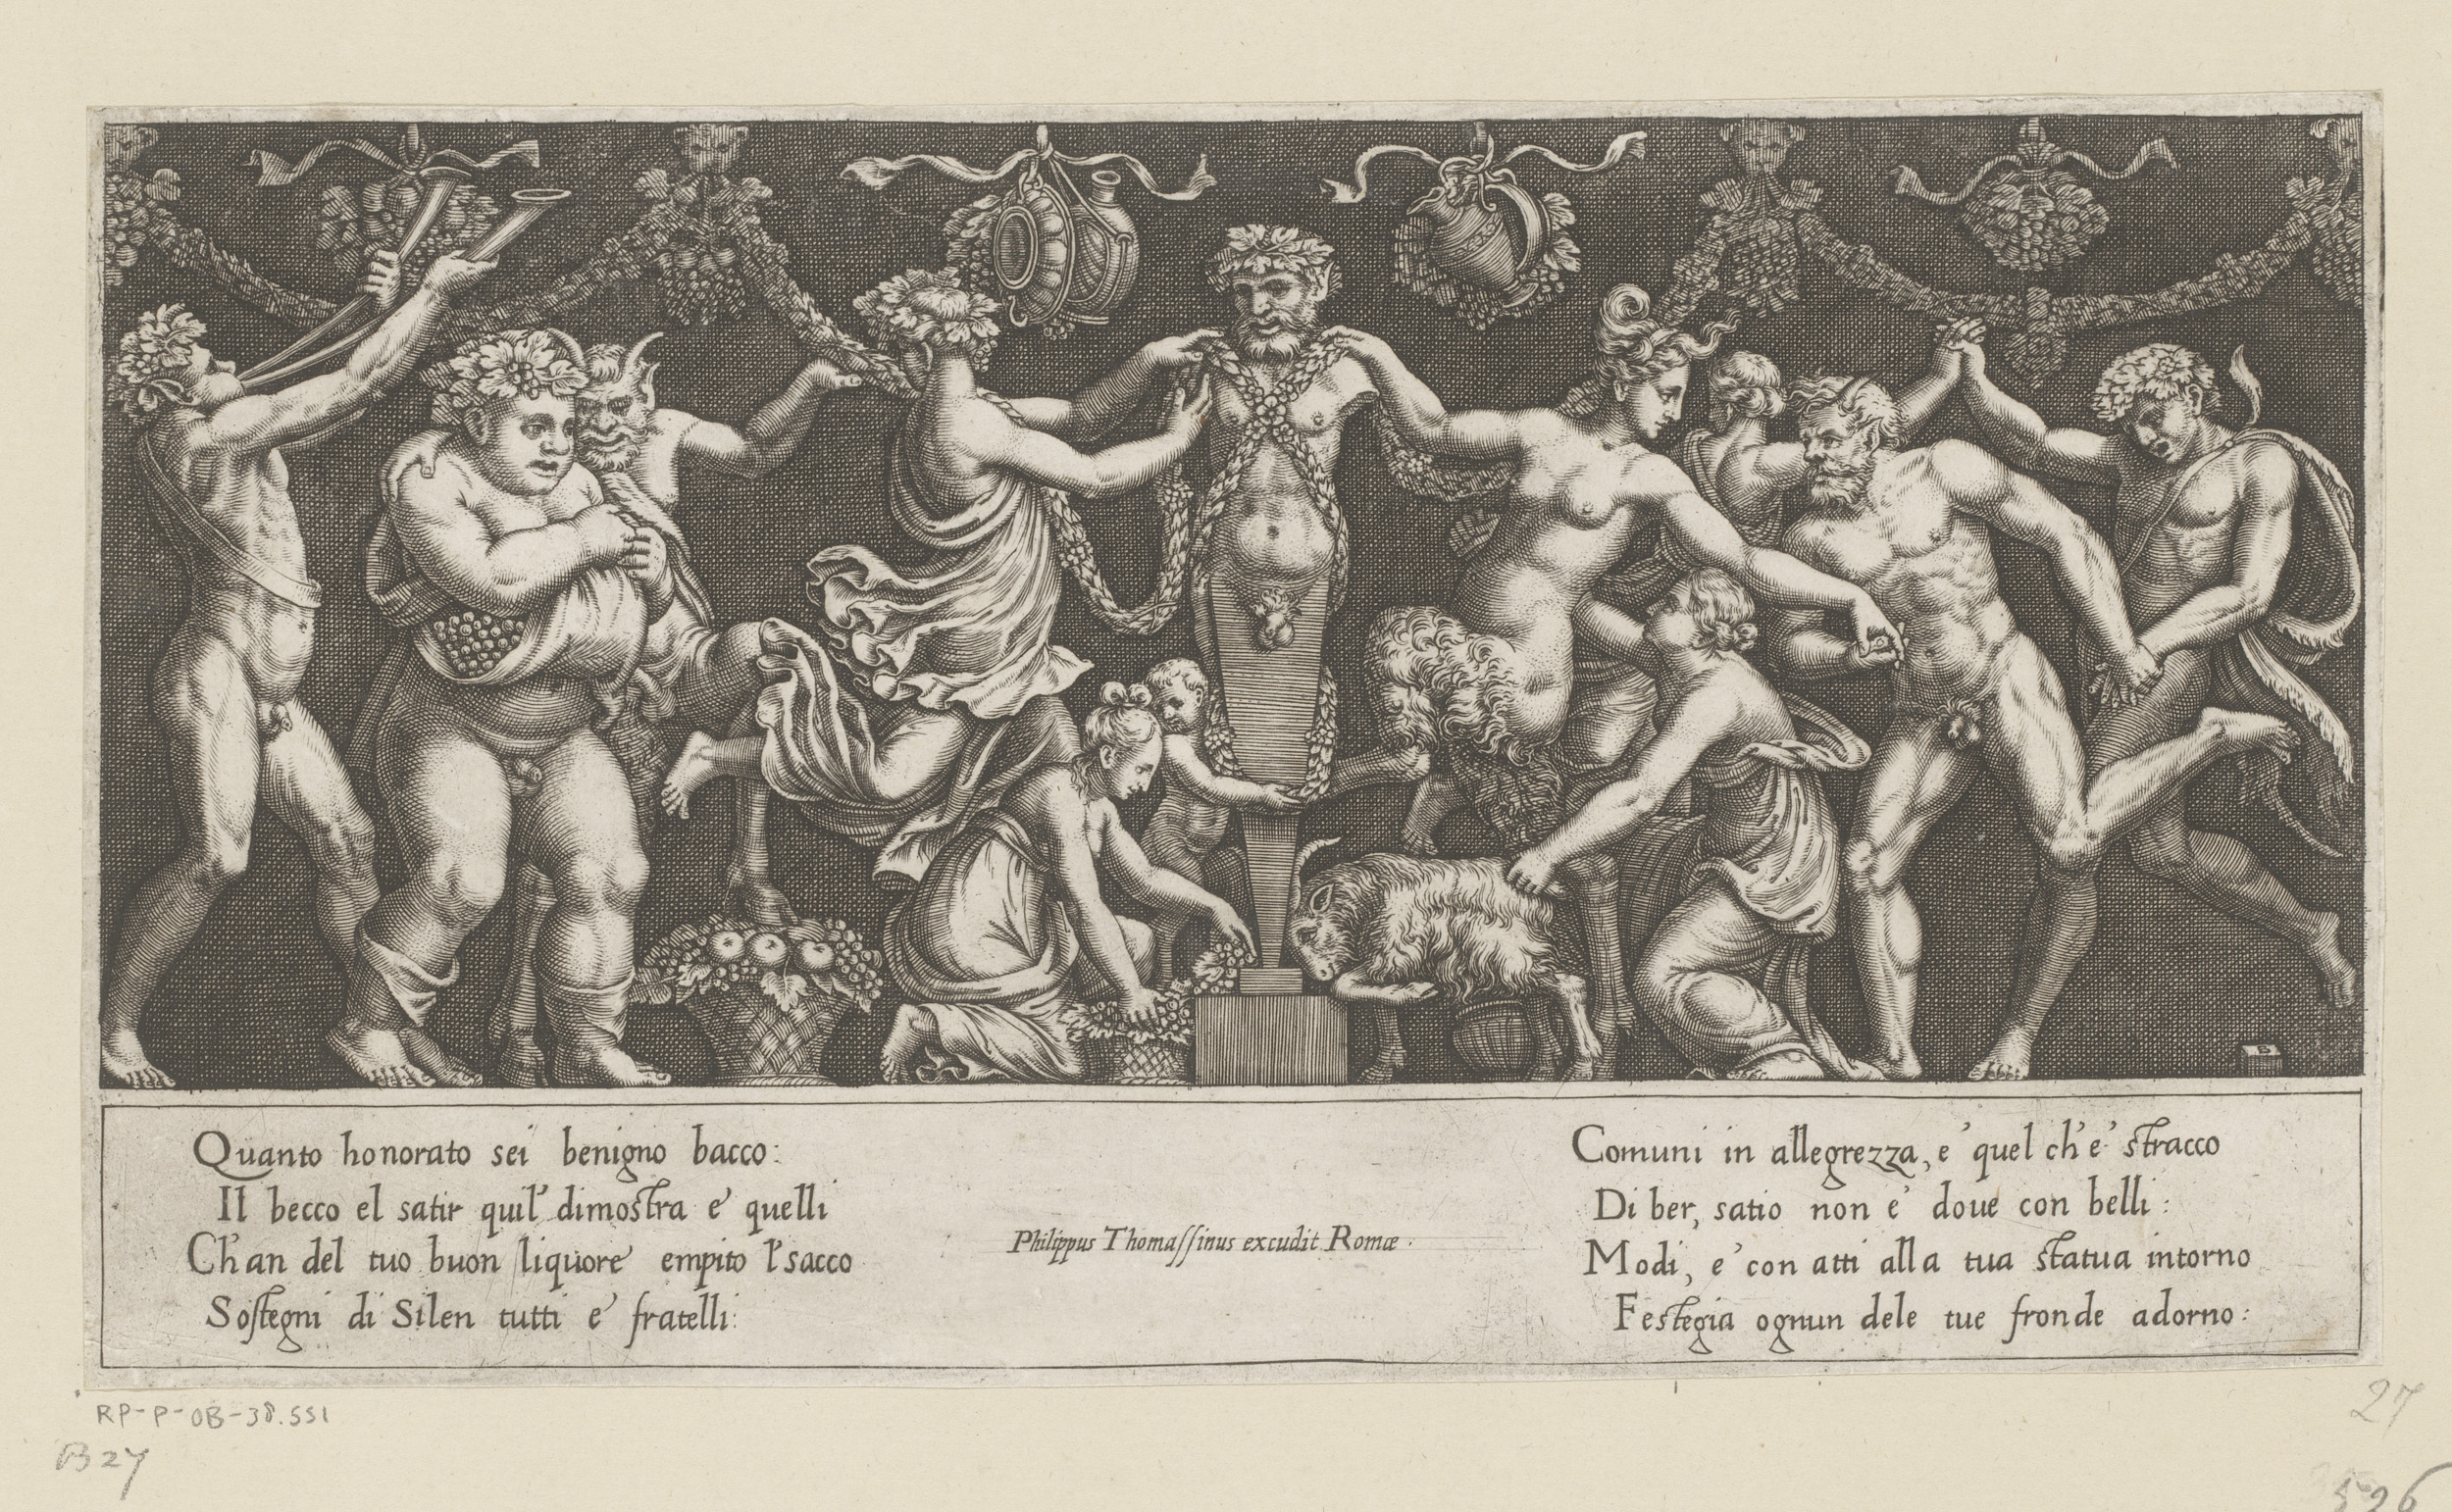 B
Quanto honorato sei benigno bacco:
Il becco el satir quil' dimostra e' quelli
Ch'an del tuo buon liquore empito l'sacco
Sostegni di Silen tutti e' fratelli:
Philippus Thomassinus excudit Romæ.
Comuni in allegrezza, e' quel ch'e' stracco
Di ber, satio non e' doue con belli:
Modi, e' con atti alla tua statua intorno
Festegia ognun dele tue fronde adorno:
RP-P-OB-38.551
B 27
27
526